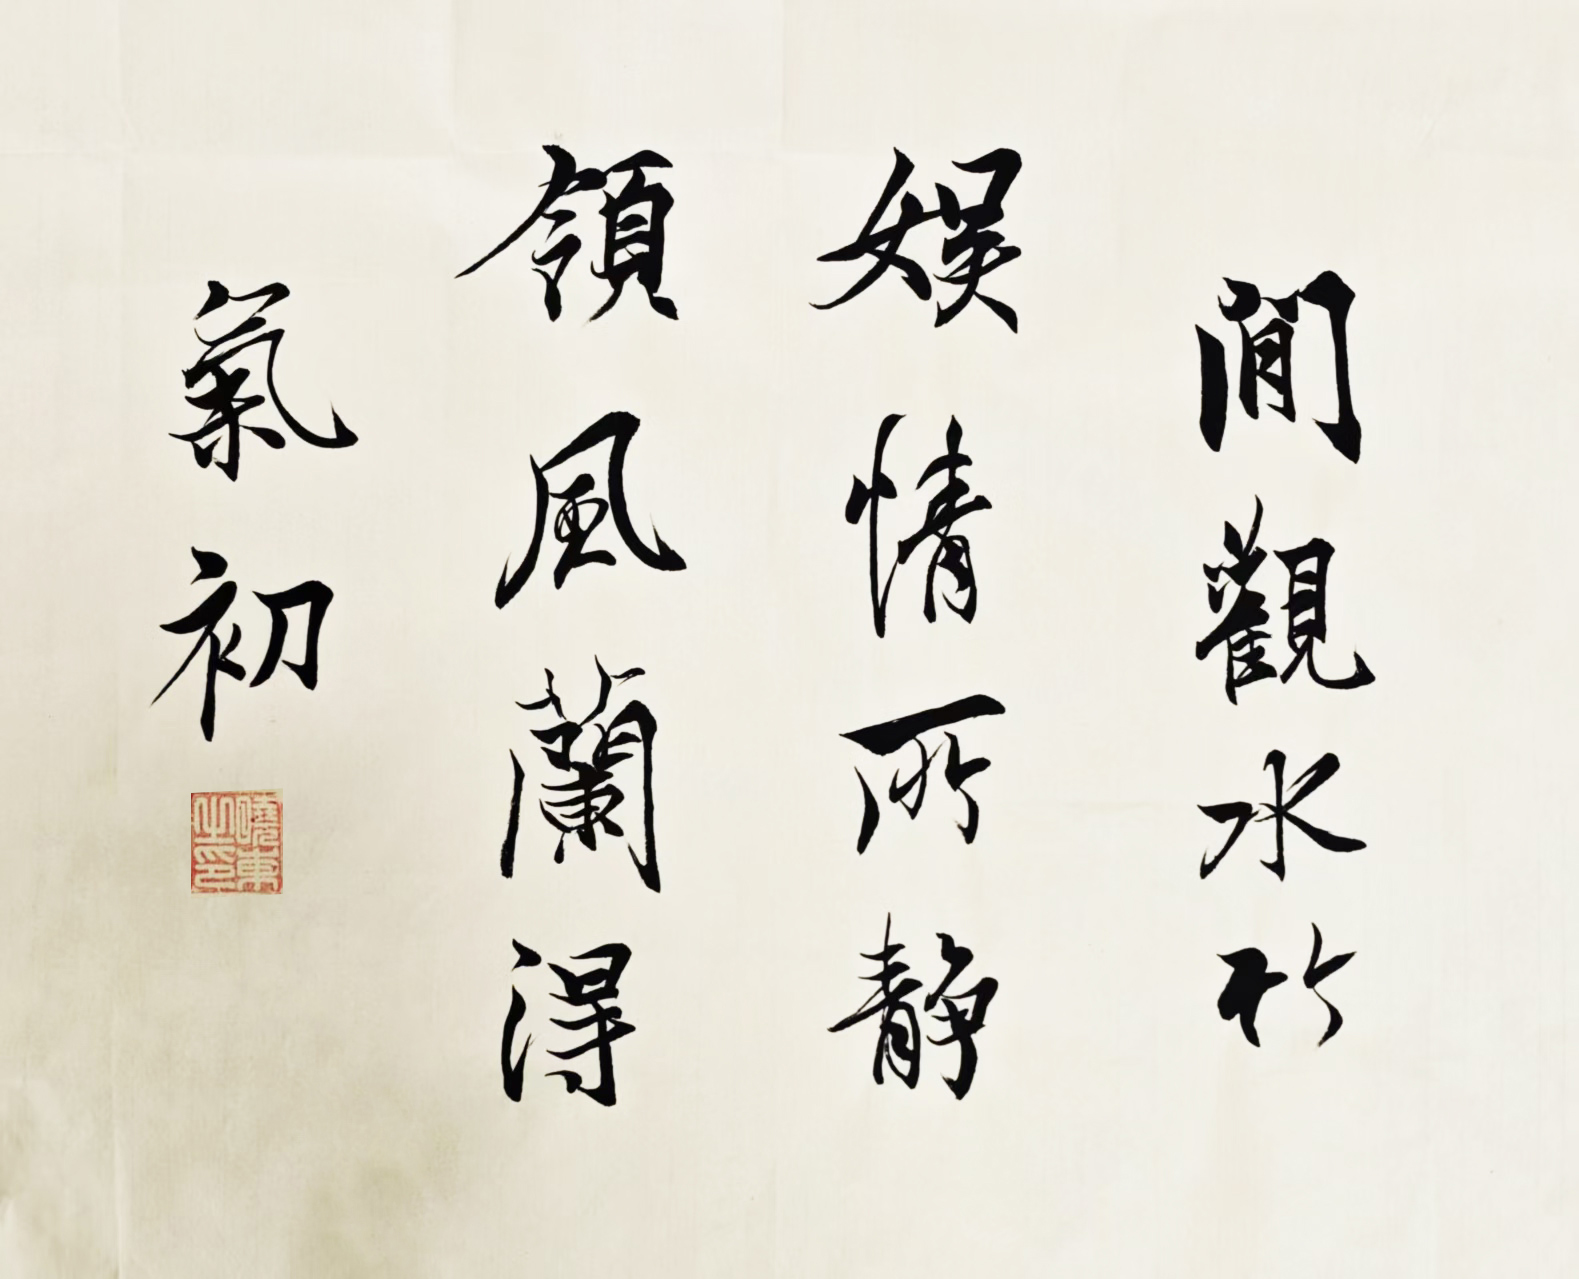 閒觀水竹
娱情所静
領風蘭得
氣初
曉東之印